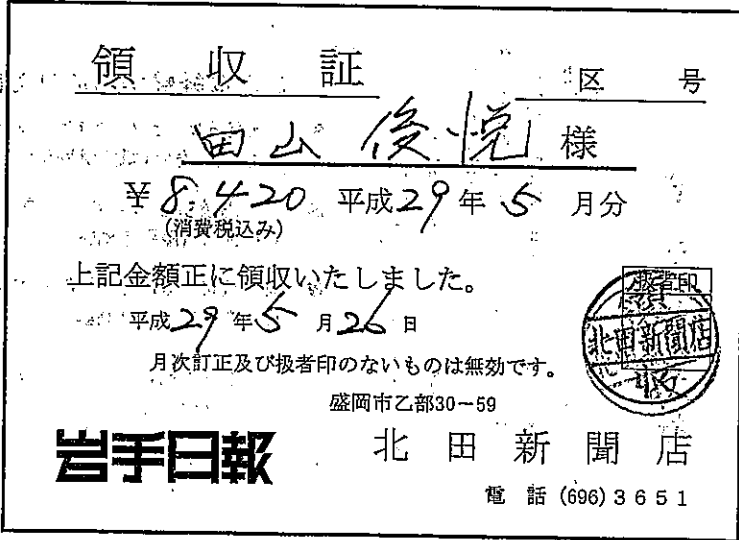 領収証
区 号
田山 俊悦 様
¥8,420 平成29年5月分
(消費税込み)
上記金額正に領収いたしました。
平成29年5月26日
扱者印
領
北田新聞店
収
月次訂正及び扱者印のないものは無効です。
盛岡市乙部30-59
岩手日報 北田新聞店
電話(696)3651